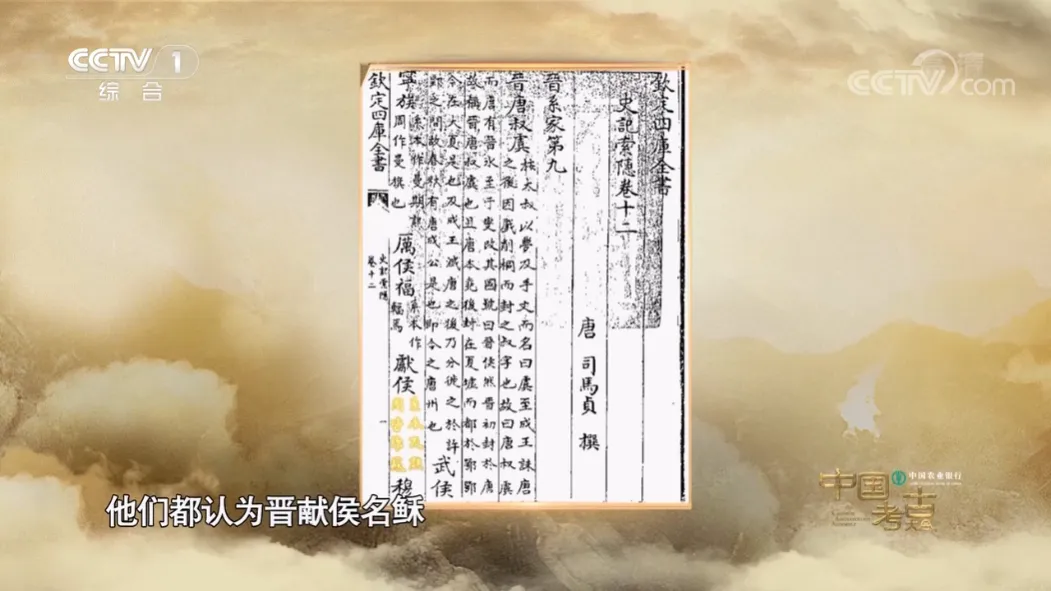 CCTV 1
综合
CCTV.com
欽定四庫全書
史記索隱卷十二
唐 司馬貞 撰
晉系家第九
晉唐叔虞 按太叔以夢及手文而名曰虞至成王誅唐
之後因戲削桐而封之叔字也故曰唐叔虞
而唐有晉水至子燮改其國號曰晉侯然晉初封於唐
故稱晉唐叔虞也且唐本堯後封在夏墟而都於鄂鄂
今在大夏是也及成王滅唐之後乃分徙之於許
郢之間故春秋有唐成公是也即今之唐州也 武侯
寧族 系本作曼期譙
周作曼旗也 厲侯福 系本作
輻 獻侯 系本及譙
周皆作蘇 穆
欽定四庫全書
史記索隱
卷十二
他们都认为晋献侯名稣
中国考古
中国农业银行